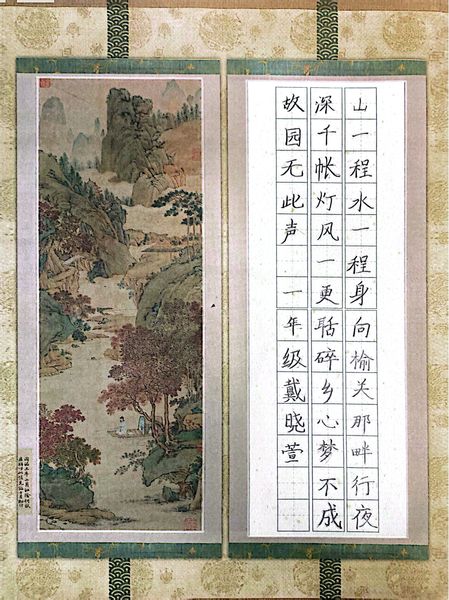 山一程水一程身向榆关那畔行夜
深千帐灯风一更聒碎乡心梦不成
故园无此声 一年级戴晓萱